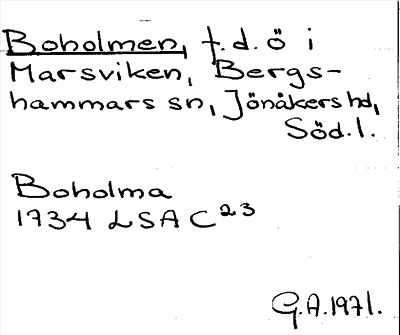 Boholmen, f.d. ö i
Marsviken, Bergs-
hammars sn, Jönåkers hd,
Söd.l.
Boholma
1734 LSA C²³
G.A.1971.